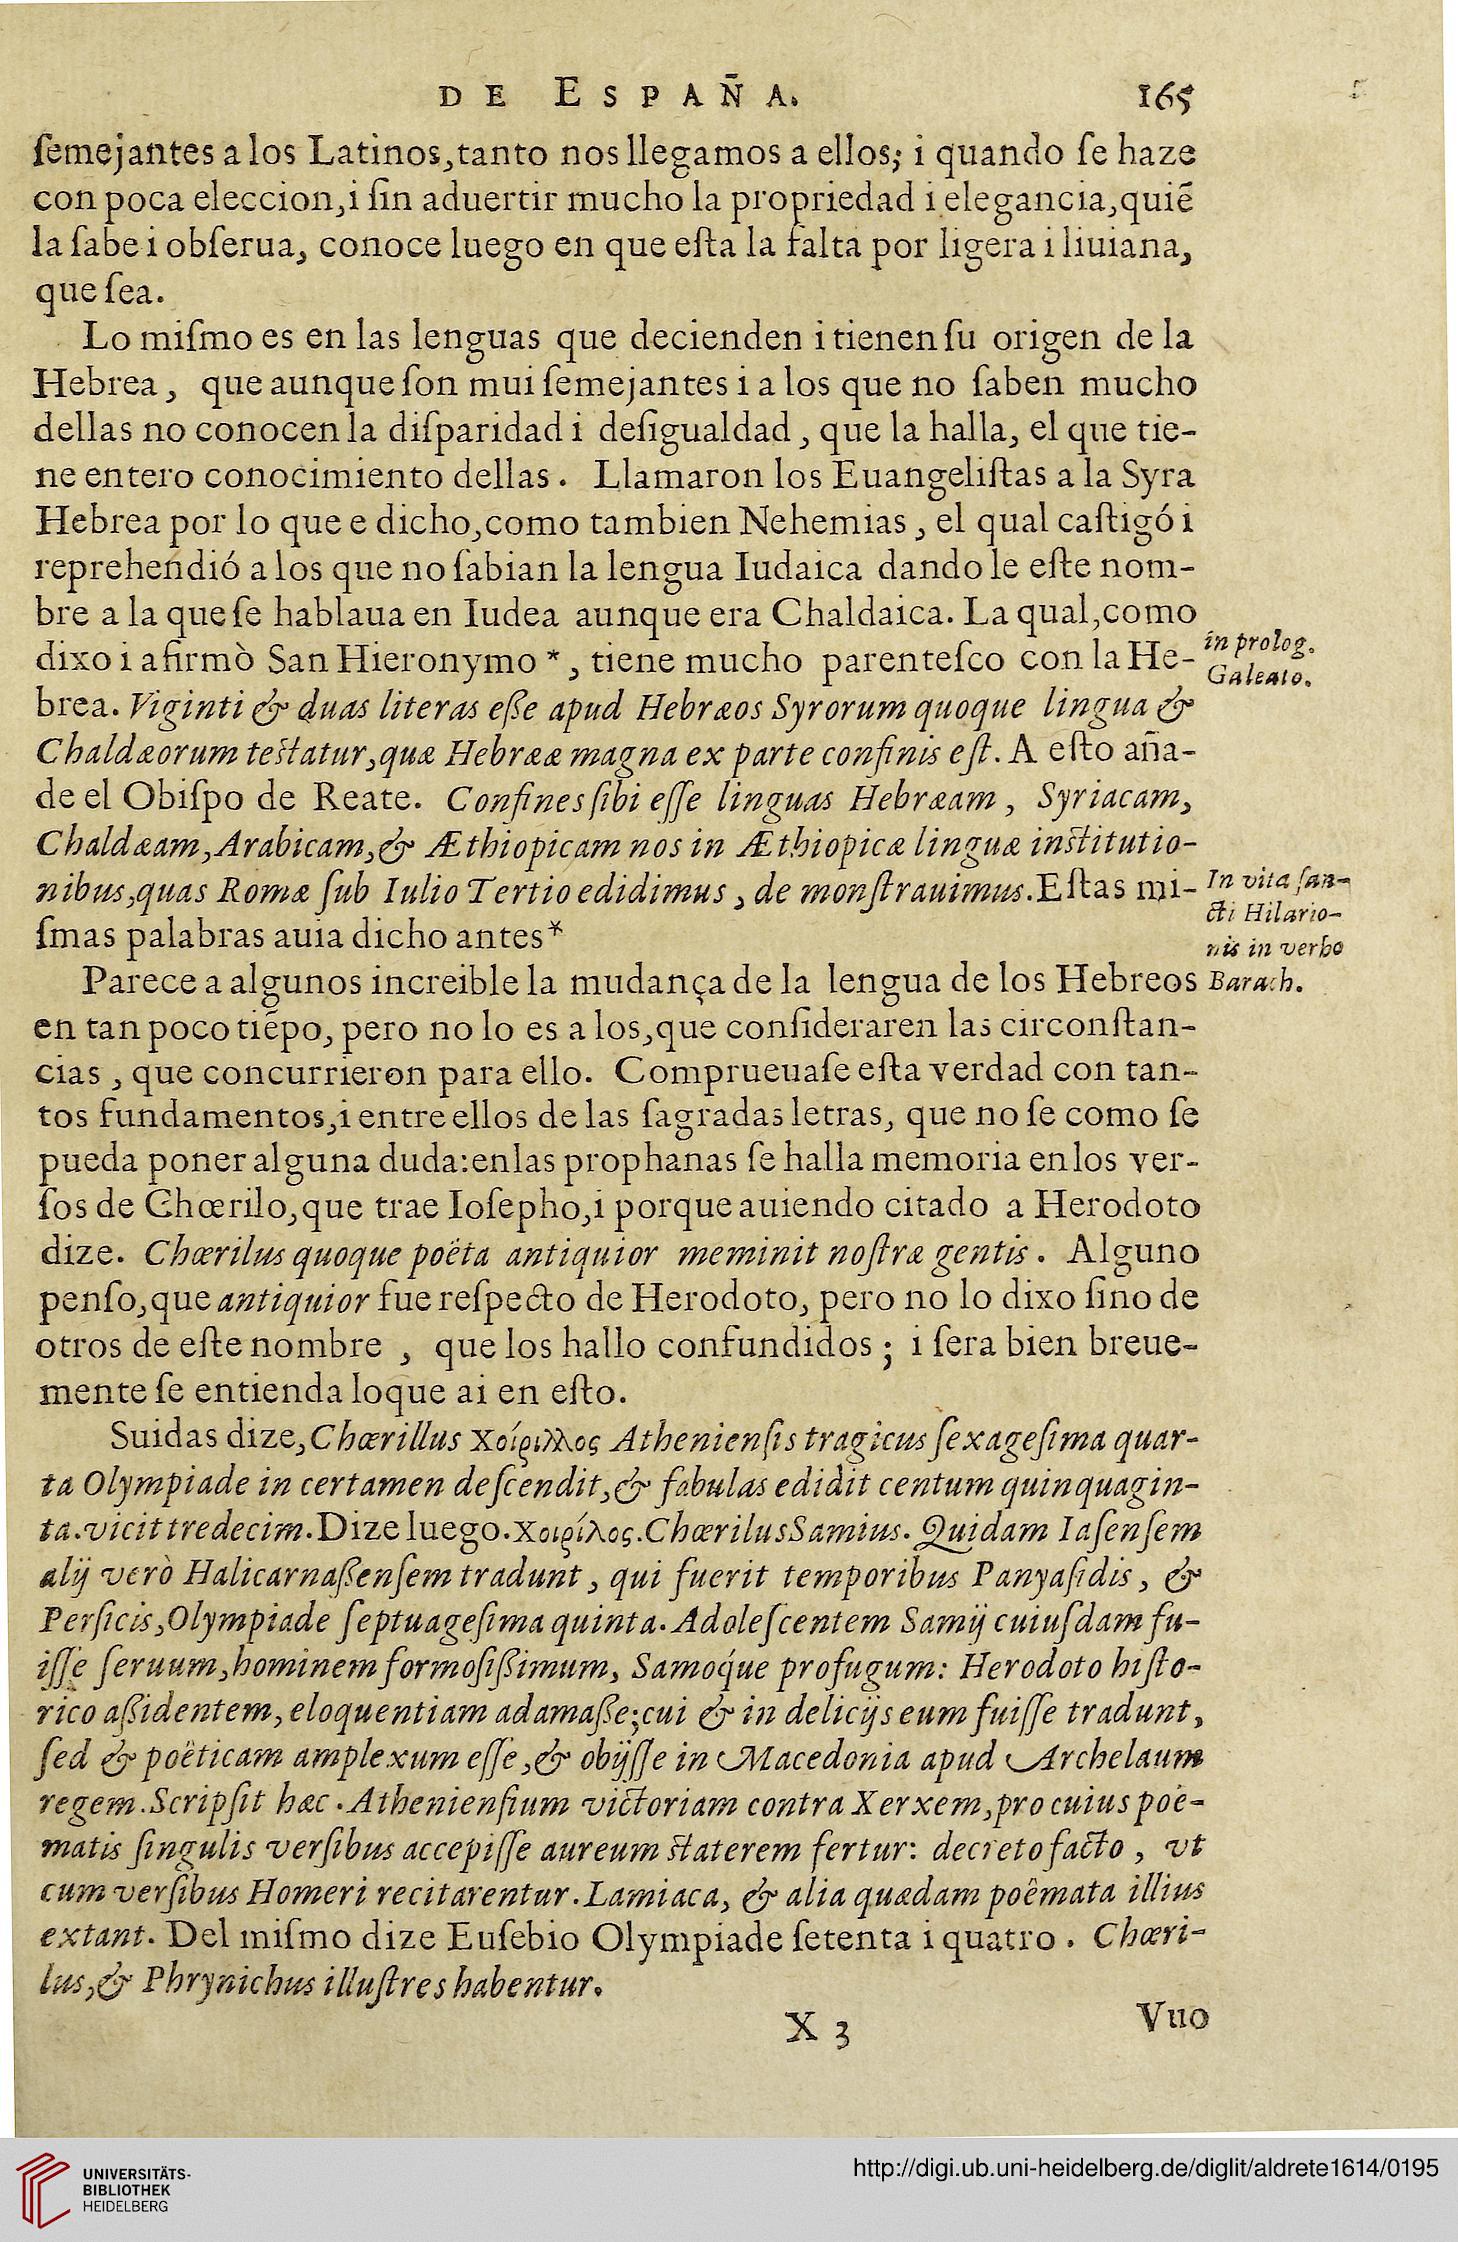 DE ESPAÑA. 165
ſemejantes a los Latinos,tanto nos llegamos a ellos; i quando ſe haze
con poca eleccion,i ſin aduertir mucho la propriedad i elegancia,quiẽ
la ſabe i obſerua, conoce luego en que eſta la falta por ligera i liuiana,
que ſea.
Lo miſmo es en las lenguas que decienden i tienen ſu origen de la
Hebrea, que aunque ſon mui ſemejantes i a los que no ſaben mucho
dellas no conocen la diſparidad i deſigualdad, que la halla, el que tie-
ne entero conocimiento dellas. Llamaron los Euangeliſtas a la Syra
Hebrea por lo que e dicho,como tambien Nehemias, el qual caſtigó i
reprehendió a los que no ſabian la lengua Iudaica dando le eſte nom-
bre a la que ſe hablaua en Iudea aunque era Chaldaica. La qual,como
dixo i afirmò San Hieronymo *, tiene mucho parenteſco con la He-
in prolog.
Galeato.
brea. Viginti & duas literas eße apud Hebræos Syrorum quoque lingua &
Chaldæorum teſtatur,quæ Hebrææ magna ex parte confinis eſt. A eſto aña-
de el Obiſpo de Reate. Confines ſibi eſſe linguas Hebræam, Syriacam,
Chaldæam,Arabicam,& Æthiopicam nos in Æthiopicæ linguæ inſtitutio-
nibus,quas Romæ ſub Iulio Tertio edidimus, de monſtrauimus.Eſtas mi-
ſmas palabras auia dicho antes*
In vita ſan-
cti Hilario-
nis in verbo
Barach.
Parece a algunos increible la mudança de la lengua de los Hebreos
en tan poco tiẽpo, pero no lo es a los,que conſideraren las circonſtan-
cias, que concurrieron para ello. Comprueuaſe eſta verdad con tan-
tos fundamentos,i entre ellos de las ſagradas letras, que no ſe como ſe
pueda poner alguna duda:enlas prophanas ſe halla memoria en los ver-
ſos de Chœrilo,que trae Ioſepho,i porque auiendo citado a Herodoto
dize. Chœrilus quoque poëta antiquior meminit noſtræ gentis. Alguno
penſo,que antiquior fue reſpecto de Herodoto, pero no lo dixo ſino de
otros de eſte nombre, que los hallo confundidos; i ſera bien breue-
mente ſe entienda loque ai en eſto.
Suidas dize,Chœrillus Χοίριλλος Athenienſis tragicus ſexageſima quar-
ta Olympiade in certamen deſcendit,& fabulas edidit centum quinquagin-
ta.vicit tredecim.Dize luego.Χοιρίλος.Chœrilus Samius. Quidam Iaſenſem
alij verò Halicarnaßenſem tradunt, qui fuerit temporibus Panyaſidis, &
Perſicis,Olympiade ſeptuageſima quinta. Adoleſcentem Samij cuiuſdam fu-
iſſe ſeruum,hominem formoſißimum, Samoq́ue profugum: Herodoto hiſto-
rico aßidentem,eloquentiam adamaße;cui & in delicijs eum fuiſſe tradunt,
ſed & poëticam amplexum eſſe,& obijſſe in Macedonia apud Archelaum
regem.Scripſit hæc.Athenienſium victoriam contra Xerxem,pro cuius poë-
matis ſingulis verſibus accepiſſe aureum ſtaterem fertur: decreto facto, vt
cum verſibus Homeri recitarentur.Lamiaca, & alia quædam poëmata illius
extant. Del miſmo dize Euſebio Olympiade ſetenta i quatro. Chœri-
lus,& Phrynichus illuſtres habentur.
X 3 Vuo
UNIVERSITÄTS-
BIBLIOTHEK
HEIDELBERG
http://digi.ub.uni-heidelberg.de/diglit/aldrete1614/0195